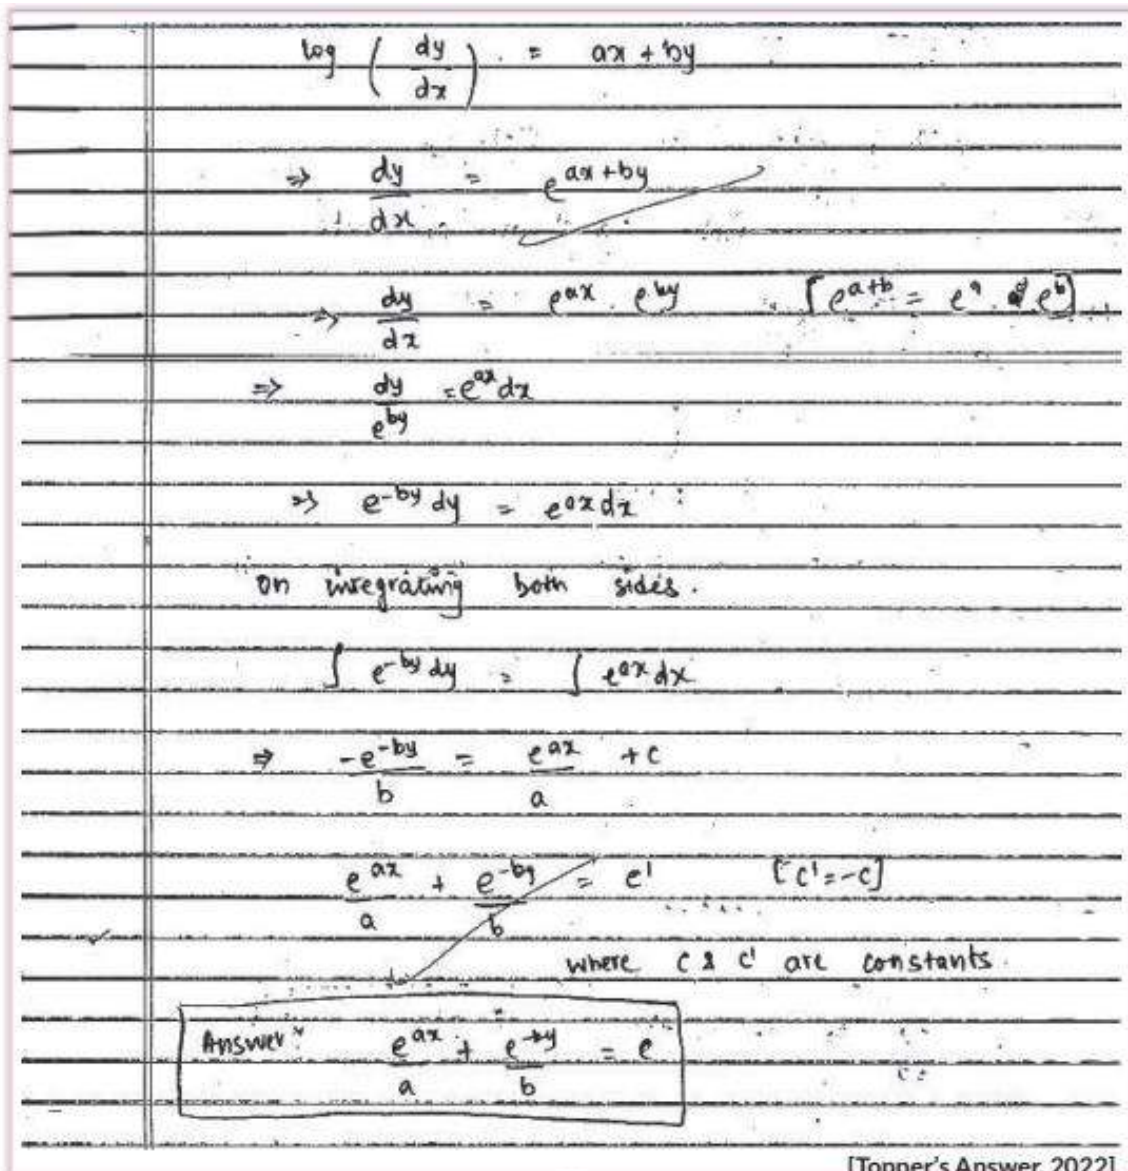 log (dy/dx) = ax + by
⇒ dy/dx = e^(ax+by)
⇒ dy/dx = e^(ax) . e^(by) [e^(a+b) = e^a . e^b]
⇒ dy/e^(by) = e^(ax) dx
⇒ e^(-by) dy = e^(ax) dx
On integrating both sides.
∫ e^(-by) dy = ∫ e^(ax) dx
⇒ -e^(-by)/b = e^(ax)/a + c
e^(ax)/a + e^(-by)/b = c' [c' = -c]
where c & c' are constants.
Answer: e^(ax)/a + e^(-by)/b = c
[Topper's Answer, 2022]